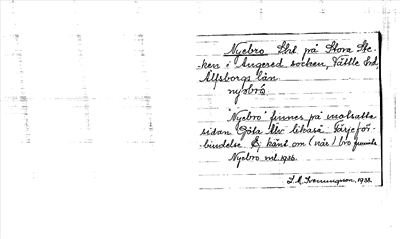 Nyebro Äbl. på Stora Ste-
-ken i Angered socken, Vättle hd,
Älfsborgs län.
nyebro.
Nyebro finnes på motsatta
sidan Göta älv likaså Färjeför-
bindelse. Ej känt om (när) bro funnits
Nyebro vid 1936.
1938.